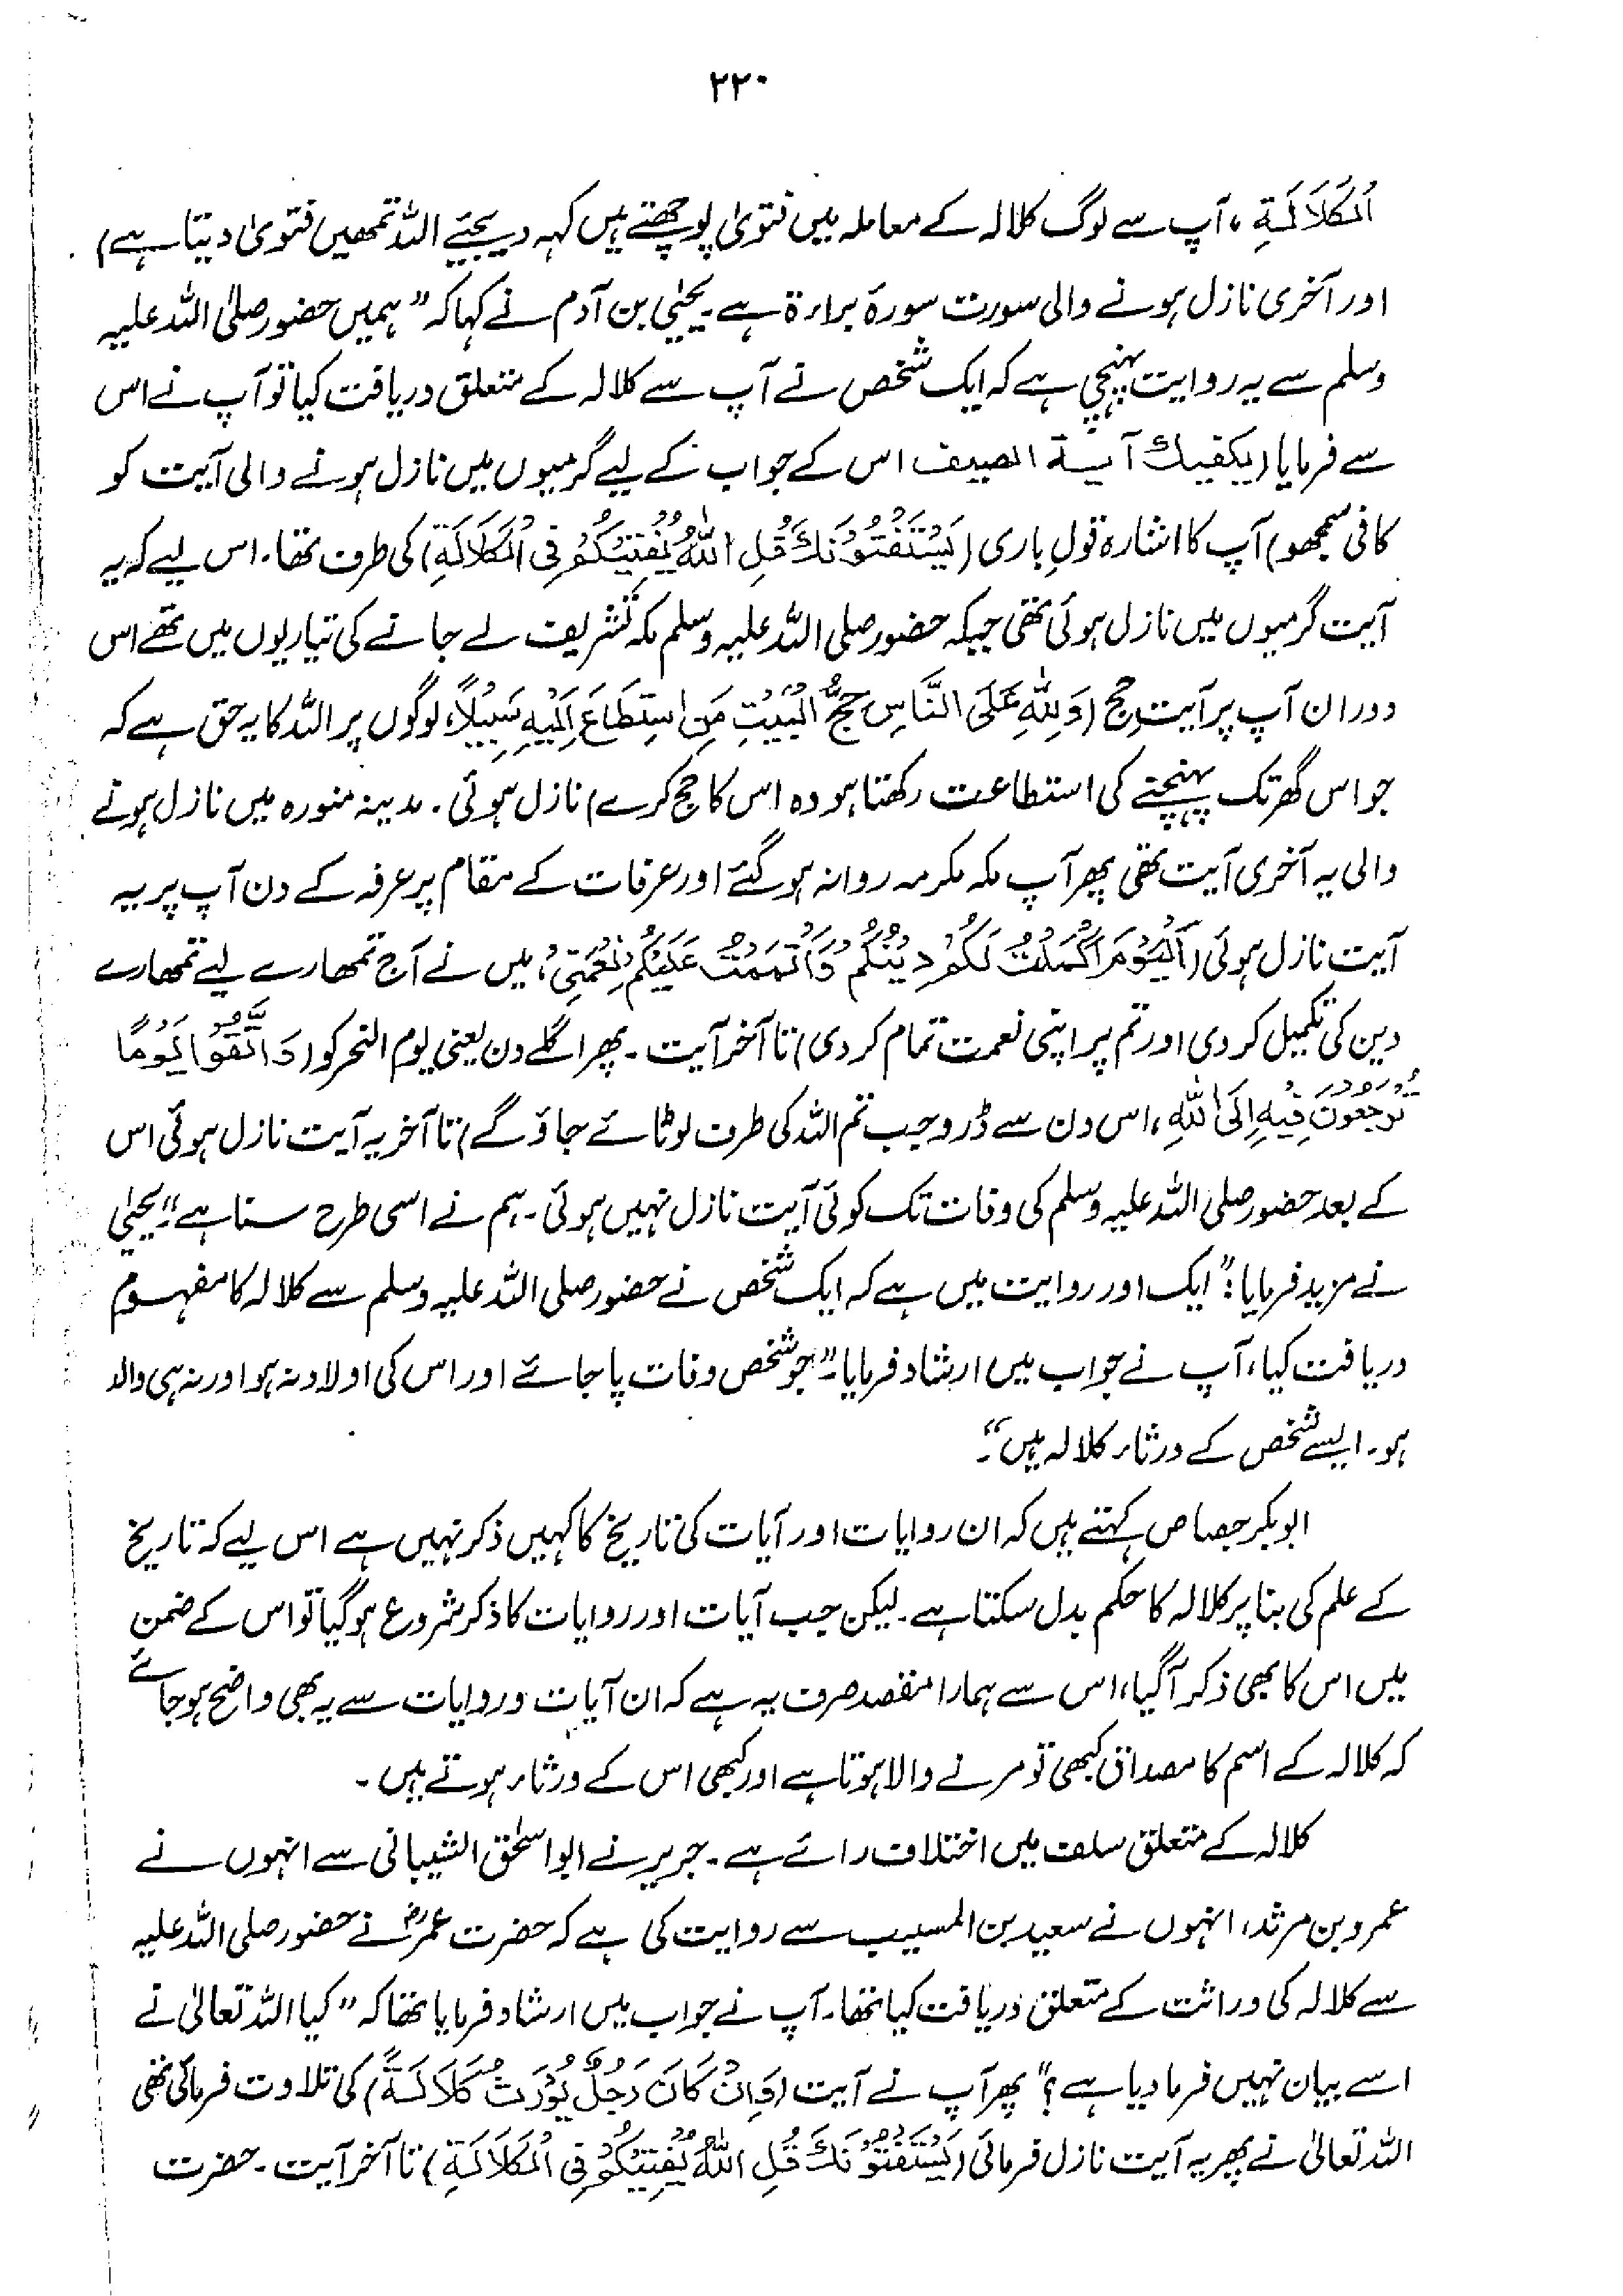 ۲۲۰
الْکَلَالَۃِ، آپ سے لوگ کلالہ کے معاملہ میں فتویٰ پوچھتے ہیں کہہ دیجئیے اللہ تمھیں فتویٰ دیتا ہے)
اور آخری نازل ہونے والی سورت سورۃ براءۃ ہے۔ یحییٰ بن آدم نے کہا کہ "ہمیں حضور صلی اللہ علیہ
وسلم سے یہ روایت پہنچی ہے کہ ایک شخص نے آپ سے کلالہ کے متعلق دریافت کیا تو آپ نے اس
سے فرمایا (یکفیک آیۃ الصیف اس کے جواب کے لیے گرمیوں میں نازل ہونے والی آیت کو
کافی سمجھو) آپ کا اشارہ قولِ باری (یَسْتَفْتُوْنَکَ قُلِ اللّٰہُ یُفْتِیْکُمْ فِی الْکَلَالَۃِ) کی طرف تھا۔ اس لیے کہ یہ
آیت گرمیوں میں نازل ہوئی تھی جبکہ حضور صلی اللہ علیہ وسلم مکہ تشریف لے جانے کی تیاریوں میں تھے اس
دوران آپ پر آیتِ حج (وَلِلّٰہِ عَلَی النَّاسِ حِجُّ الْبَیْتِ مَنِ اسْتَطَاعَ اِلَیْہِ سَبِیْلًا، لوگوں پر اللہ کا یہ حق ہے کہ
جو اس گھر تک پہنچنے کی استطاعت رکھتا ہو وہ اس کا حج کرے) نازل ہوئی۔ مدینہ منورہ میں نازل ہونے
والی یہ آخری آیت تھی پھر آپ مکہ مکرمہ روانہ ہو گئے اور عرفات کے مقام پر عرفہ کے دن آپ پر یہ
آیت نازل ہوئی (اَلْیَوْمَ اَکْمَلْتُ لَکُمْ دِیْنَکُمْ وَاَتْمَمْتُ عَلَیْکُمْ نِعْمَتِیْ، میں نے آج تمھارے لیے تمھارے
دین کی تکمیل کر دی اور تم پر اپنی نعمت تمام کر دی) تا آخر آیت۔ پھر اگلے دن یعنی یوم النحر کو (وَاتَّقُوْا یَوْمًا
تُرْجَعُوْنَ فِیْہِ اِلَی اللّٰہِ، اس دن سے ڈرو جب تم اللہ کی طرف لوٹائے جاؤ گے) تا آخر یہ آیت نازل ہوئی اس
کے بعد حضور صلی اللہ علیہ وسلم کی وفات تک کوئی آیت نازل نہیں ہوئی۔ ہم نے اسی طرح سنا ہے" یحییٰ
نے مزید فرمایا: "ایک اور روایت میں ہے کہ ایک شخص نے حضور صلی اللہ علیہ وسلم سے کلالہ کا مفہوم
دریافت کیا، آپ نے جواب میں ارشاد فرمایا۔ "جو شخص وفات پا جائے اور اس کی اولاد نہ ہو اور نہ ہی والد
ہو۔ ایسے شخص کے ورثاء کلالہ ہیں"۔
ابوبکر جصاص کہتے ہیں کہ ان روایات اور آیات کی تاریخ کا کہیں ذکر نہیں ہے اس لیے کہ تاریخ
کے علم کی بنا پر کلالہ کا حکم بدل سکتا ہے۔ لیکن جب آیات اور روایات کا ذکر شروع ہو گیا تو اس کے ضمن
میں اس کا بھی ذکر آ گیا، اس سے ہمارا مقصد صرف یہ ہے کہ ان آیات و روایات سے یہ بھی واضح ہو جائے
کہ کلالہ کے اسم کا مصداق کبھی تو مرنے والا ہوتا ہے اور کبھی اس کے ورثاء ہوتے ہیں۔
کلالہ کے متعلق سلف میں اختلاف رائے ہے۔ جریر نے ابو اسحٰق الشیبانی سے انہوں نے
عمرو بن مرثد، انہوں نے سعید بن المسیب سے روایت کی ہے کہ حضرت عمرؓ نے حضور صلی اللہ علیہ
سے کلالہ کی وراثت کے متعلق دریافت کیا تھا۔ آپ نے جواب میں ارشاد فرمایا تھا کہ "کیا اللہ تعالیٰ نے
اسے بیان نہیں فرما دیا ہے؟" پھر آپ نے آیت (وَاِنْ کَانَ رَجُلٌ یُّوْرَثُ کَلَالَۃً) کی تلاوت فرمائی تھی
اللہ تعالیٰ نے پھر یہ آیت نازل فرمائی (یَسْتَفْتُوْنَکَ قُلِ اللّٰہُ یُفْتِیْکُمْ فِی الْکَلَالَۃِ) تا آخر آیت۔ حضرت